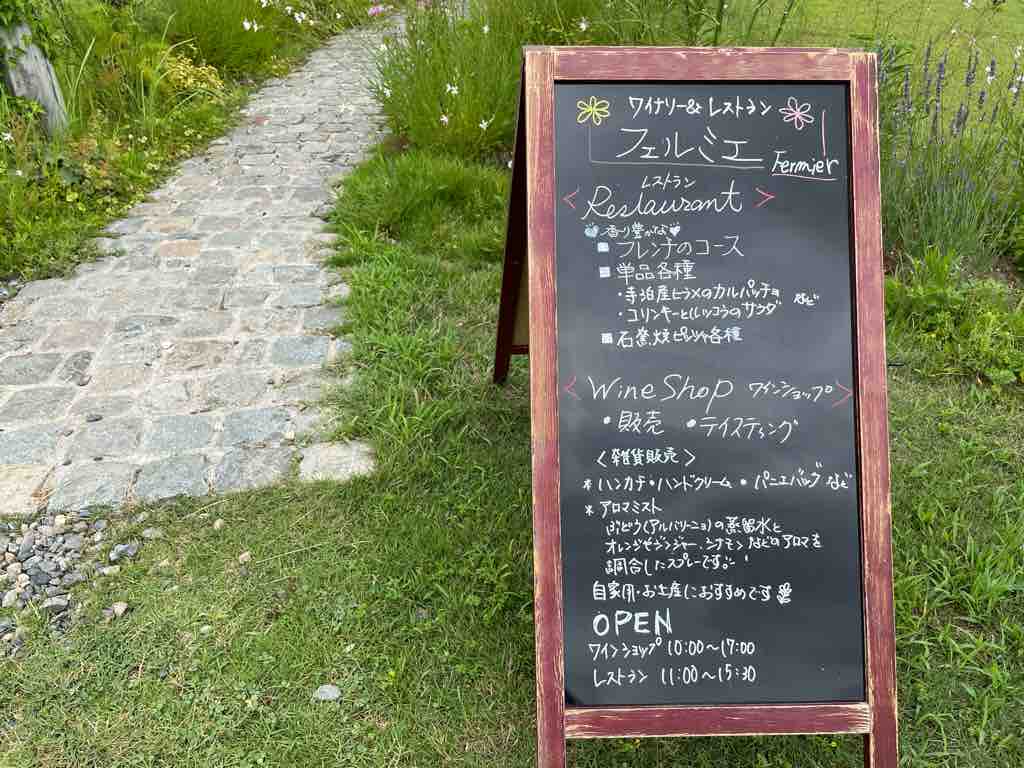 ワイナリー& レストラン
フェルミエ Fermier
レストラン
< Restaurant >
香り豊かな
フレンチのコース
単品各種
・寺泊産ヒラメのカルパッチョ など
・コリンキーとルッコラのサラダ
石窯焼ピッツァ各種
< Wine Shop ワインショップ >
・販売 ・テイスティング
〈雑貨販売〉
* ハンカチ・ハンドクリーム・パニエバッグ など
* アロマミスト
ぶどう(アルバリーニョ)の蒸留水と
オレンジやジンジャー、シナモンなどのアロマを
調合したスプレーです。
自家用・お土産におすすめです
OPEN
ワインショップ 10:00〜17:00
レストラン 11:00〜15:30